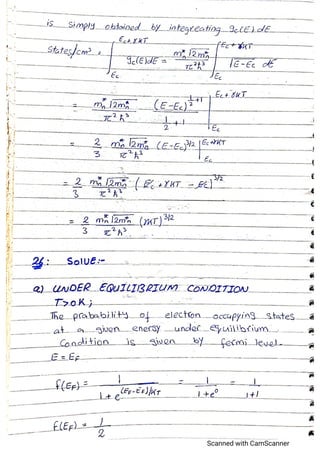 is simply obtained by integreating gc(E) dE
States/cm³ = ∫_{Ec}^{Ec+γKT} gc(E)dE = mn*√2mn* / π²ħ³ ∫_{Ec}^{Ec+γKT} √E-Ec dE
= mn*√2mn* / π²ħ³ (E-Ec)^{1/2+1} / 1/2+1 |_{Ec}^{Ec+γKT}
= 2/3 mn*√2mn* / π²ħ³ (E-Ec)^{3/2} |_{Ec}^{Ec+γKT}
= 2/3 mn*√2mn* / π²ħ³ (Ec+γKT - Ec)^{3/2}
= 2/3 mn*√2mn* / π²ħ³ (γKT)^{3/2}
Solue:-
a) UNDER EQUILIBRIUM CONDITION
T>0K;
The probability of electron occupying states
at a given energy under equilibrium
Condition is given by fermi level.
E = EF
f(EF) = 1 / 1+e^{(EF-EF)/KT} = 1 / 1+e⁰ = 1 / 1+1
f(EF) = 1/2
Scanned with CamScanner